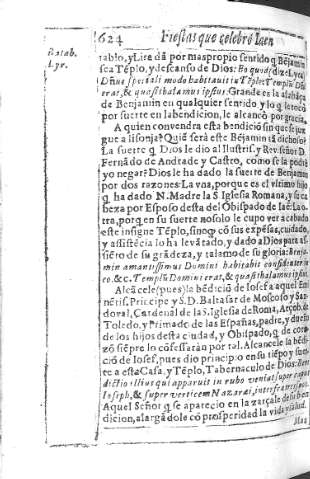 624 Fiestas que celebrò Iaen
Batab.
Lyr.
tablo, y Lira dā por mas propio sentido q̄ Bējamin
sea Tēplo, y descanso de Dios: Eo quod (dize Lyra)
Dñus speciali modo habitauit in Tēplo: Templū Dñi
erat, & quasi thalamus ipsius. Grande es la alabāça
de Benjamin en qualquier sentido, y lo q̄ le tocò
por suerte en la bendicion, le alcançò por gracia.
A quien convendra esta bendiciō sin que se juz
gue a lisonja? Quiē serà este Bējamin tā dichoso?
La suerte q̄ Dios le dio al Illustriss. y Rev. señor D.
Fernādo de Andrade y Castro, como se la podrà
yo negar? Dios le ha dado la suerte de Benjamin
por dos razones: La vna, porque es el vltimo hijo
q̄ ha dado N. Madre la S. Iglesia Romana, y su ca
beza por Esposo desta del Obispado de Iaē: La o-
tra, porq̄ en su suerte no solo le cupo ver acabado
este insigne Tēplo, sino q̄ cō sus expēsas, cuidado,
y assistēcia lo ha levātado, y dado a Dios para as-
siēto de su grādeza, y talamo de su gloria: Benia-
min amantissimus Domini habitabit confidenter in
eo. &c. Templū Domini erat, & quasi thalamus ipsius.
Alcāçele (pues) la bēdiciō de Iosef a aquel Emi
nētiss. Principe y S. D. Baltasar de Moscoso y San-
doval, Cardenal de la S. Iglesia de Roma, Arçob. de
Toledo, y Primado de las Españas, padre, y dueño
de los hijos desta ciudad, y Obispado, q̄ de cora-
zō siēpre lo cōfessarà por tal. Alcançele la bēdi-
ciō de Iosef, pues dio principio en su tiēpo y suer-
te a esta Casa, y Tēplo, Tabernaculo de Dios: Bene
dictio illius qui apparuit in rubo veniat super caput
Ioseph, & super verticem Nazarai, inter fratres suos.
Aquel Señor q̄ se aparecio en la zarçale de su ben
dicion, alargādole cō prosperidad la vida y salud.